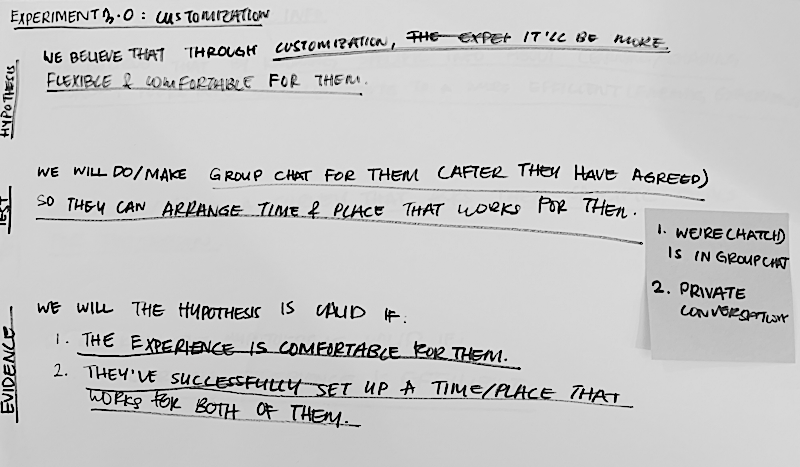 EXPERIMENT 3.0: CUSTOMIZATION
HYPOTHESIS
WE BELIEVE THAT THROUGH CUSTOMIZATION, THE EXPER IT'LL BE MORE
FLEXIBLE & COMFORTABLE FOR THEM.
TEST
WE WILL DO/MAKE GROUP CHAT FOR THEM (AFTER THEY HAVE AGREED)
SO THEY CAN ARRANGE TIME & PLACE THAT WORKS FOR THEM.
1. WEIRE(CHATID)
IS IN GROUPCHAT
2. PRIVATE
CONVERSATION
EVIDENCE
WE WILL THE HYPOTHESIS IS VALID IF:
1. THE EXPERIENCE IS COMFORTABLE FOR THEM.
2. THEY'VE SUCCESSFULLY SET UP A TIME/PLACE THAT
WORKS FOR BOTH OF THEM.